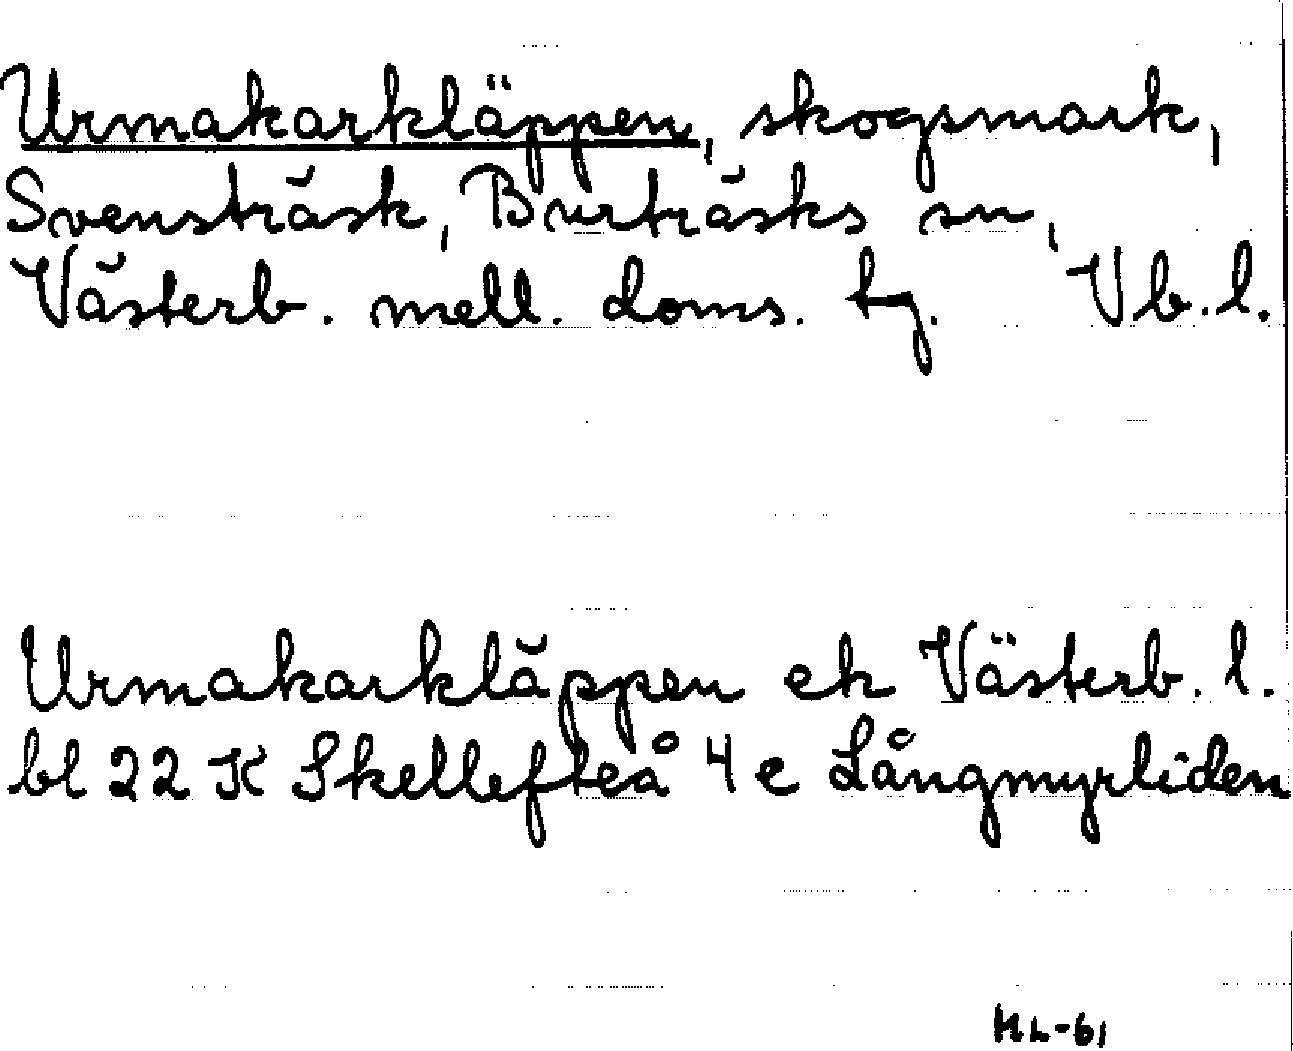 Urmakarkläppen, skogsmark,
Svensträsk, Burträsks sn,
Västerb. mell. doms. tg. Vb.l.
Urmakarkläppen ek Västerb. l.
bl 22 K Skellefteå 4 e Långmyrliden
HL-61